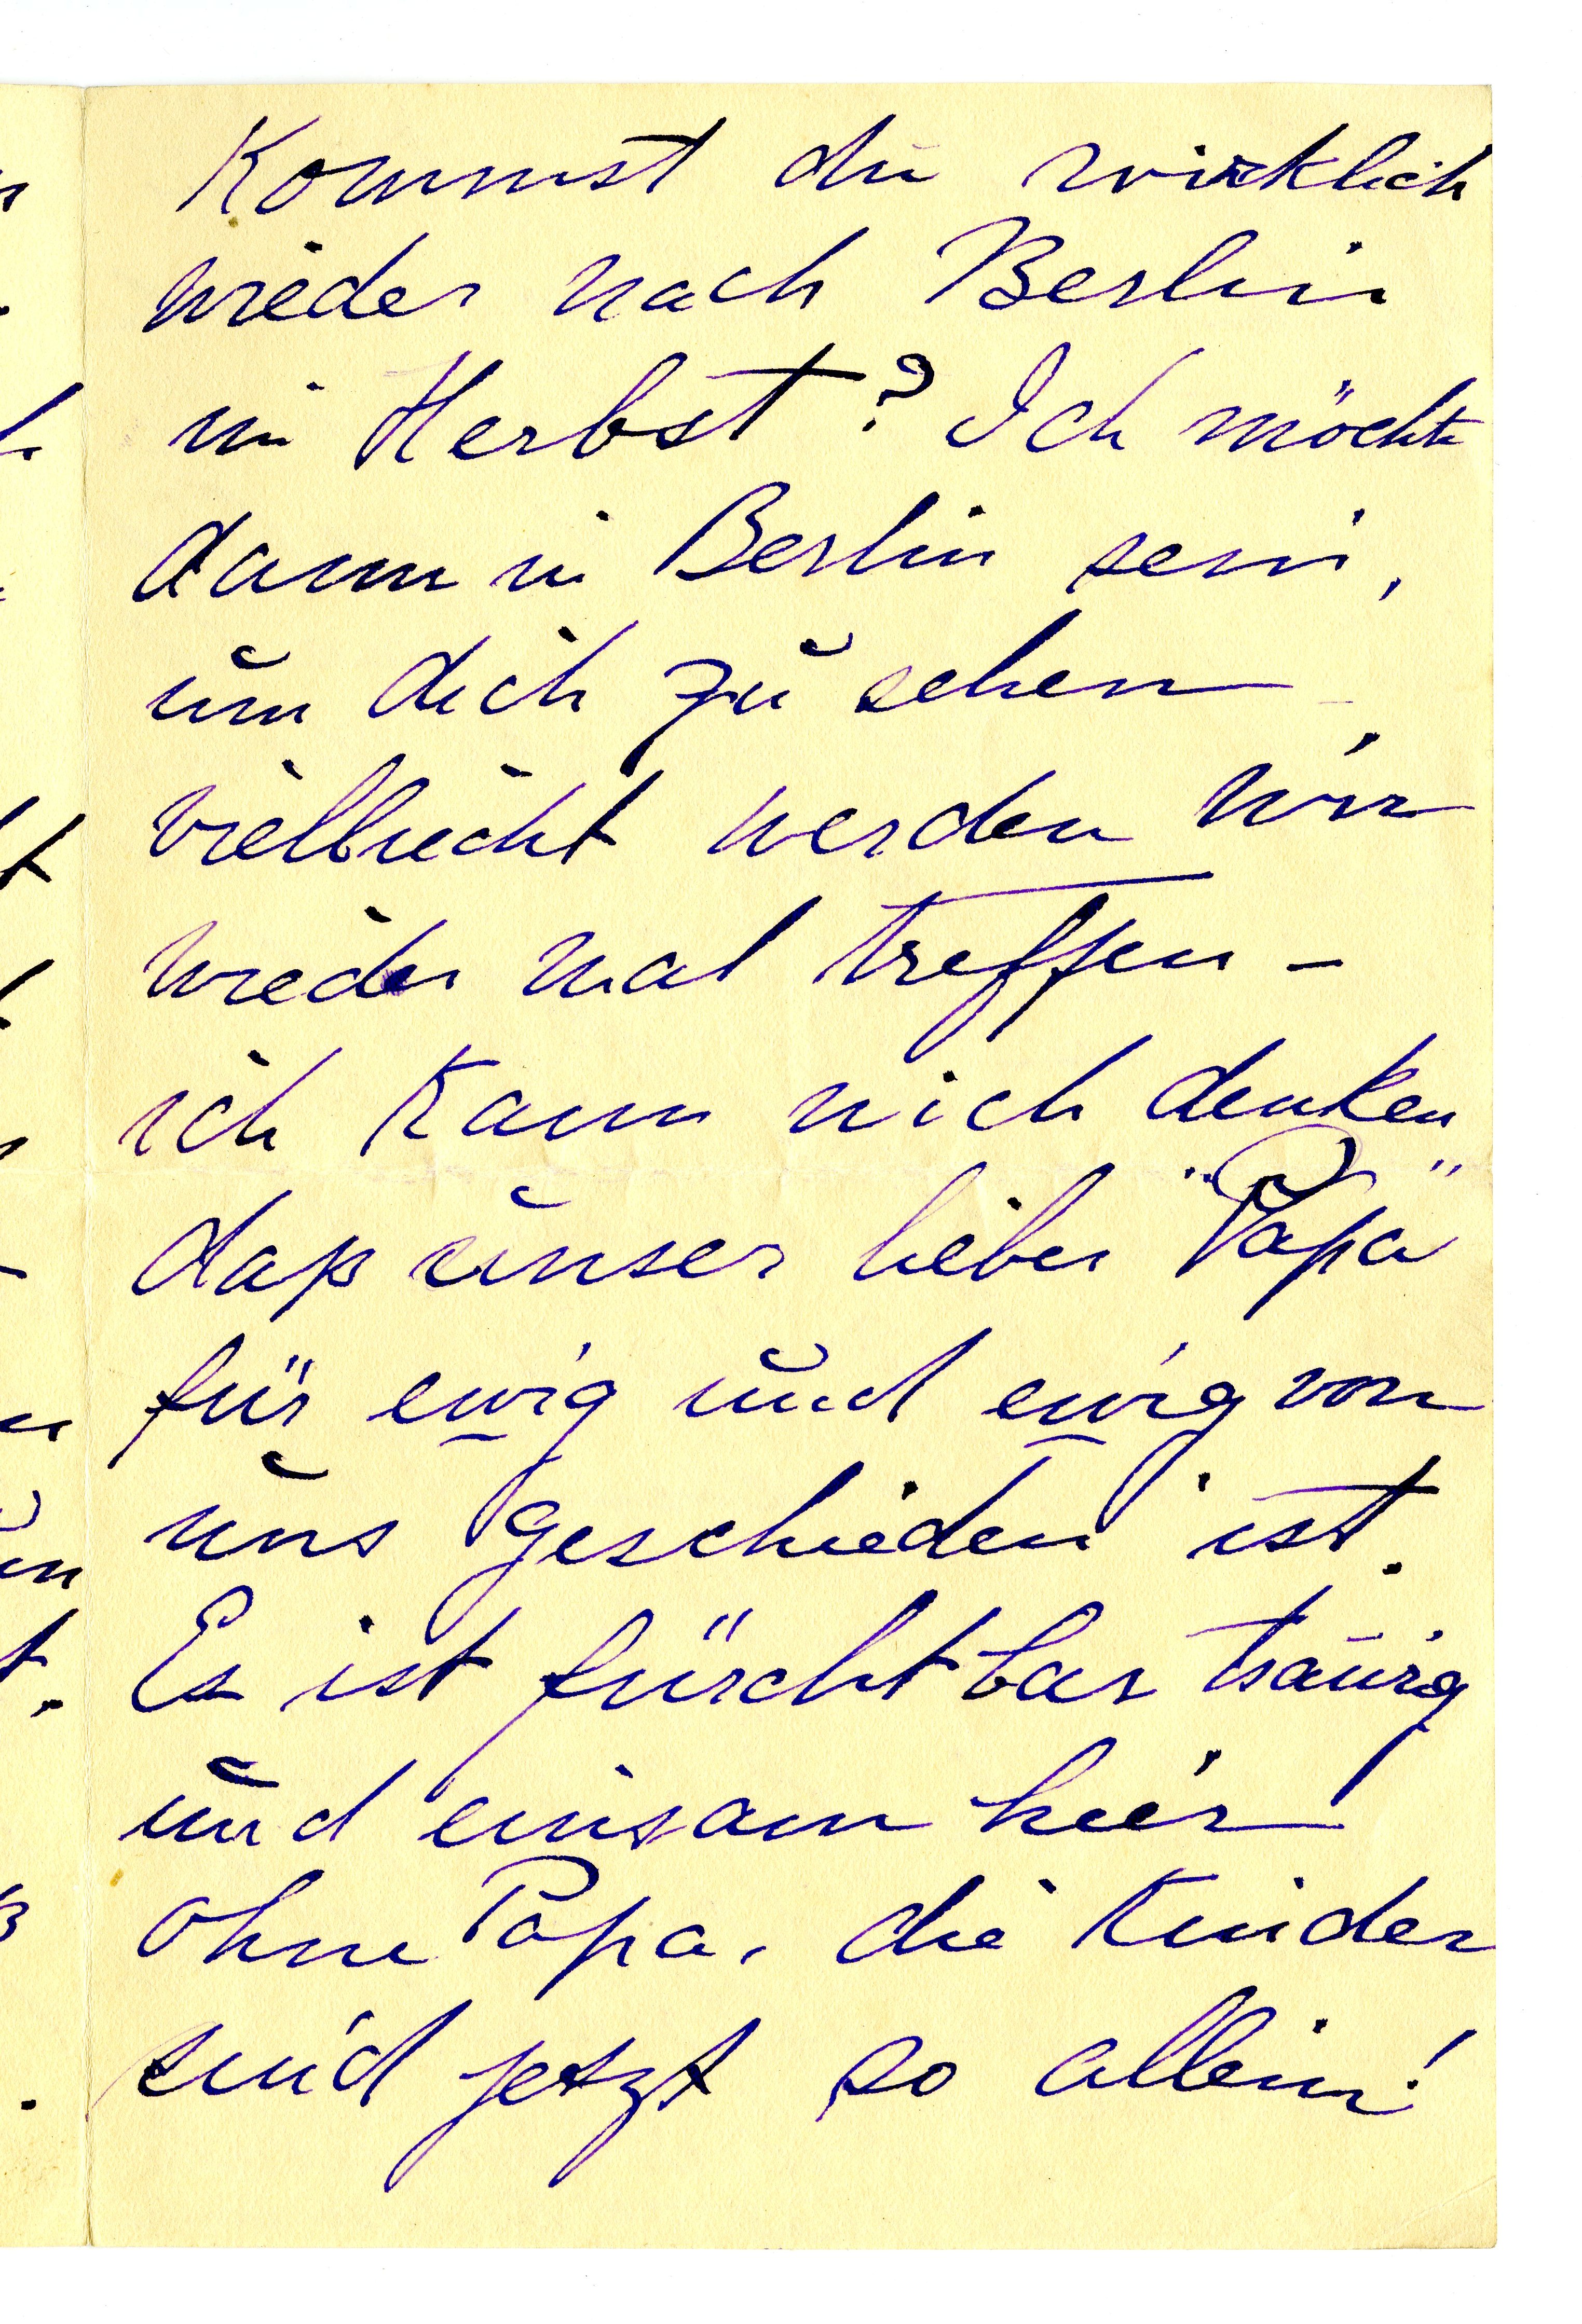 Kommst du wirklich
wieder nach Berlin
im Herbst? Ich möchte
dann in Berlin sein,
um dich zu sehen,
vielleicht werden wir
wieder mal treffen –
ich kann nich denken
daß unser lieber "Papa"
für ewig und ewig von
uns geschieden ist.
Es ist fürchtbar traurig
und einsam hier
ohne Papa, die Kinder
sind jetzt so allein!